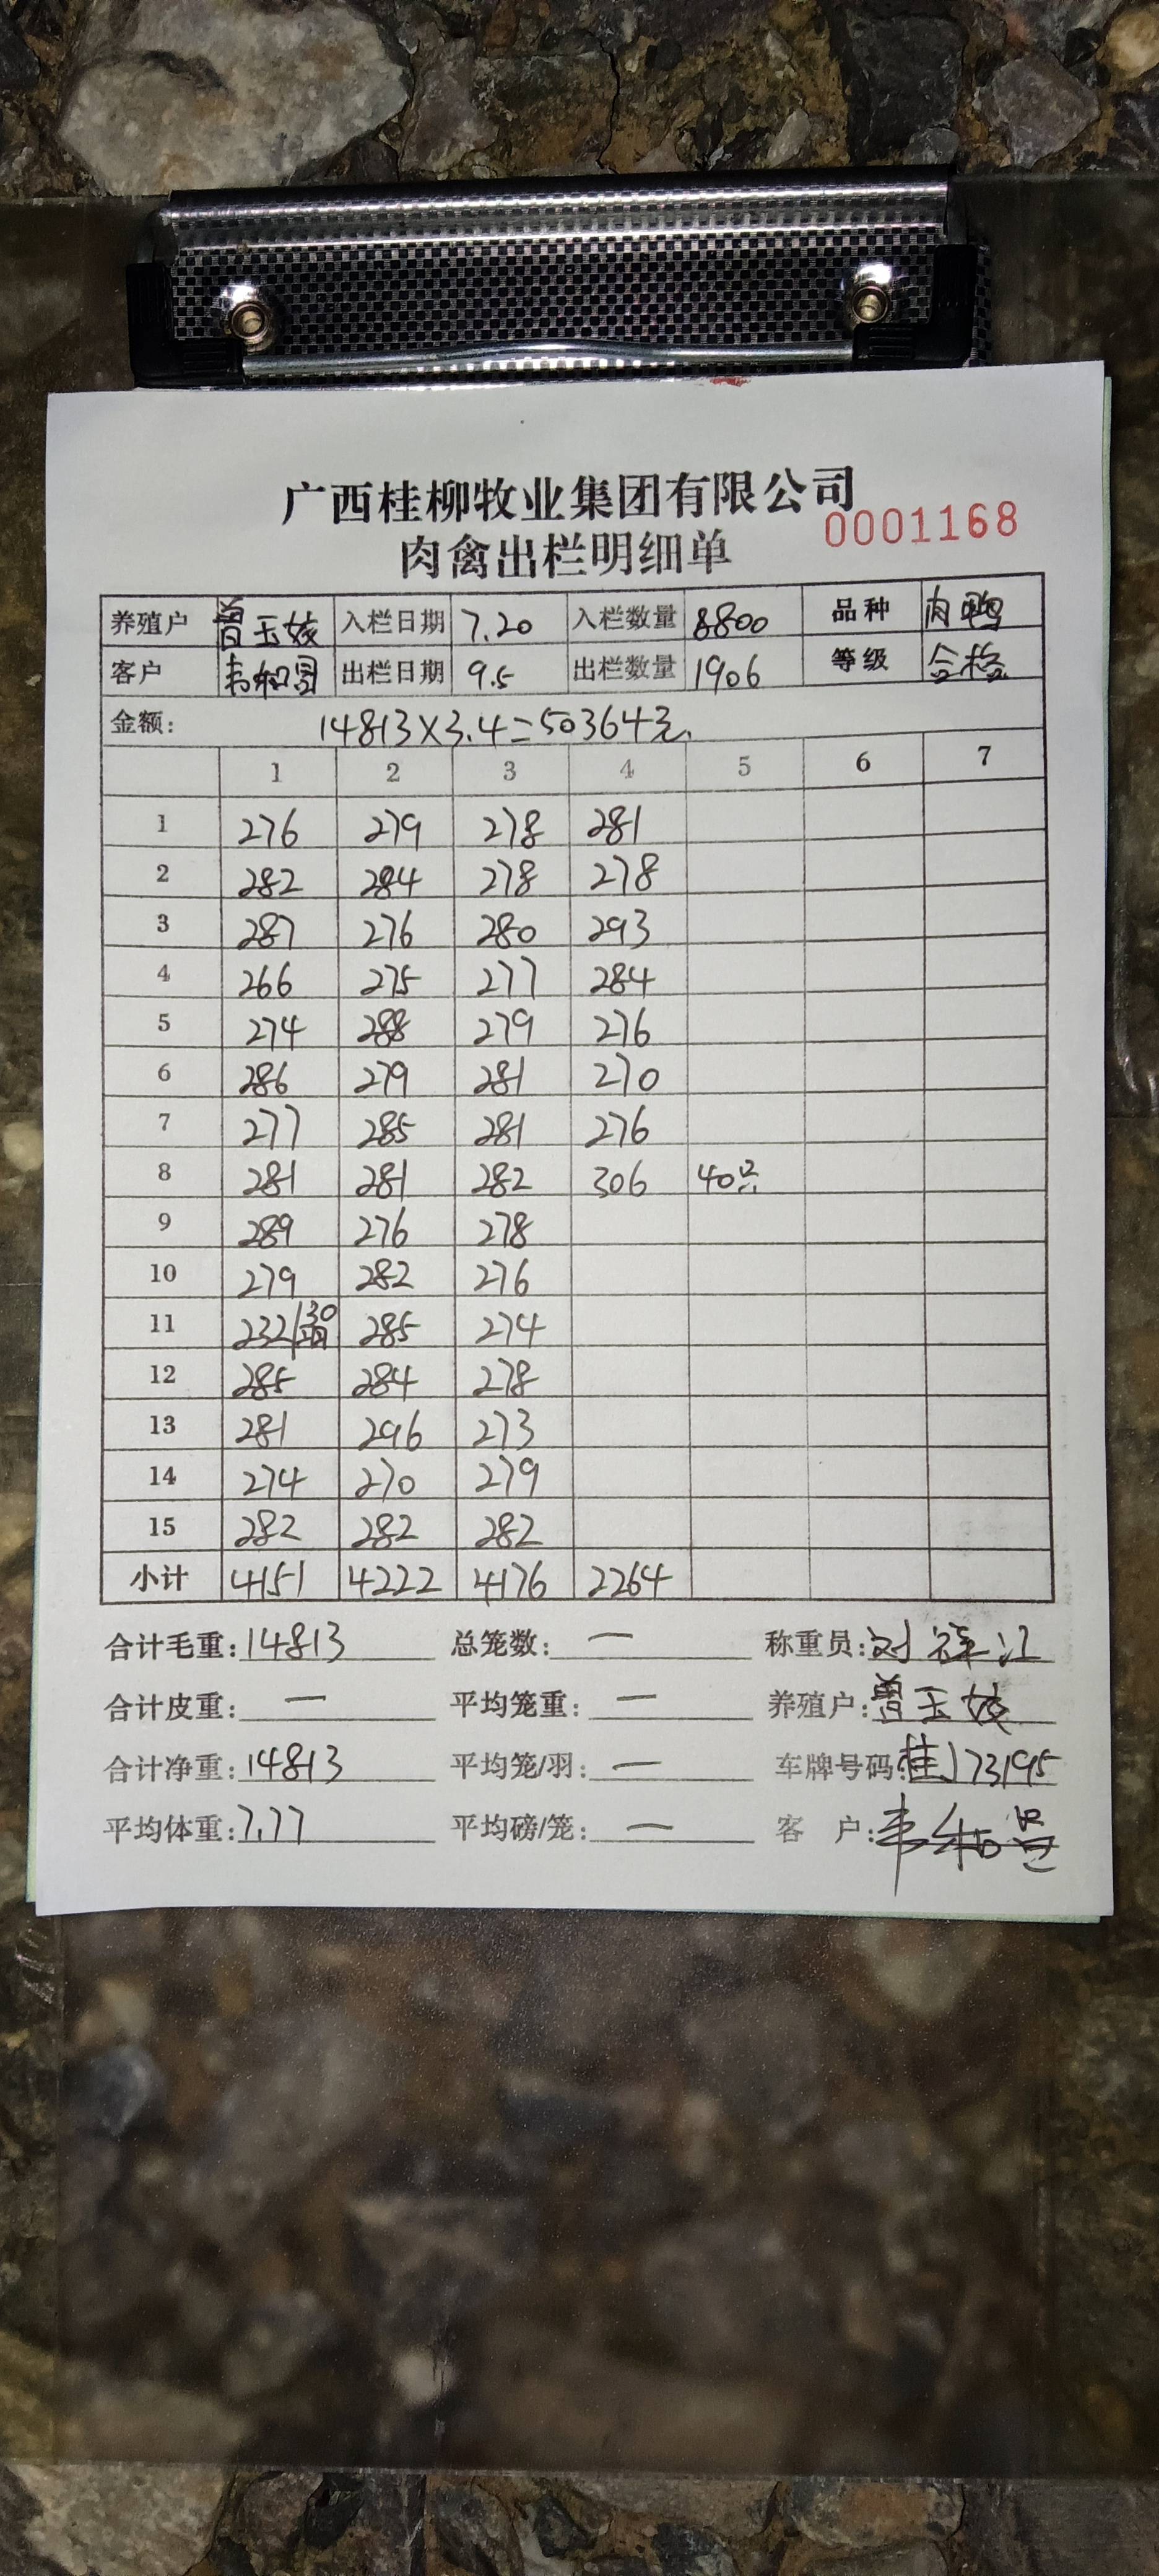 广西桂柳牧业集团有限公司
0001168
肉禽出栏明细单
养殖户 曾玉姣 入栏日期 7.20 入栏数量 8800 品种 肉鸭
客户 韦和昌 出栏日期 9.5 出栏数量 1906 等级 合格
金额: 14813×3.4=50364元.
1 2 3 4 5 6 7
1 276 279 278 281
2 282 284 278 278
3 287 276 280 293
4 266 275 277 284
5 274 288 279 276
6 286 279 281 270
7 277 285 281 276
8 281 281 282 306 40只
9 289 276 278
10 279 282 276
11 232 30 285 274
12 285 284 278
13 281 296 273
14 274 270 279
15 282 282 282
小计 4151 4222 4176 2264
合计毛重: 14813 总笼数: — 称重员: 刘
合计皮重: — 平均笼重: — 养殖户: 曾玉姣
合计净重: 14813 平均笼/羽: — 车牌号码: 桂J73195
平均体重: 7.77 平均磅/笼: — 客 户: 韦和昌